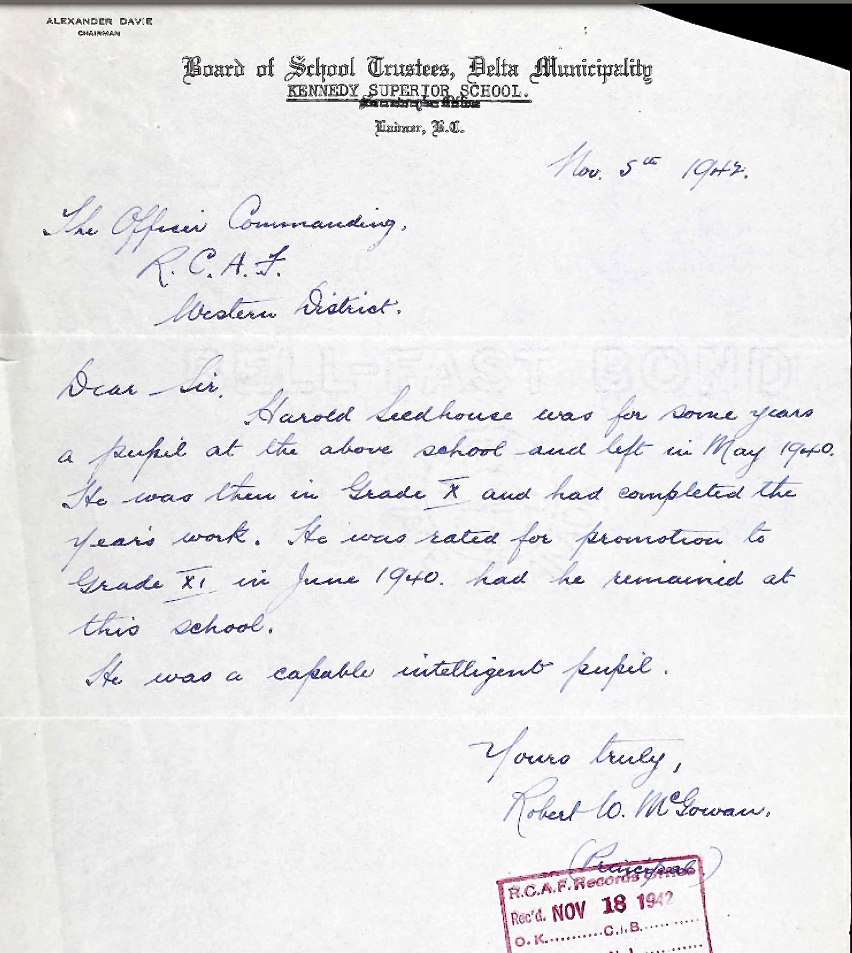 ALEXANDER DAVIE
CHAIRMAN
Board of School Trustees, Delta Municipality
KENNEDY SUPERIOR SCHOOL.
Ladner, B.C.
Nov. 5th 1942.
The Officer Commanding,
R.C.A.F.
Western District.
Dear Sir,
Harold Seedhouse was for some years
a pupil at the above school and left in May 1940.
He was then in Grade X and had completed the
year's work. He was rated for promotion to
Grade XI in June 1940. had he remained at
this school.
He was a capable intelligent pupil.
Yours truly,
Robert W. McGowan.
(Principal)
R.C.A.F. Records Office
Rec'd. NOV 18 1942
O.K...........C.I.B...........